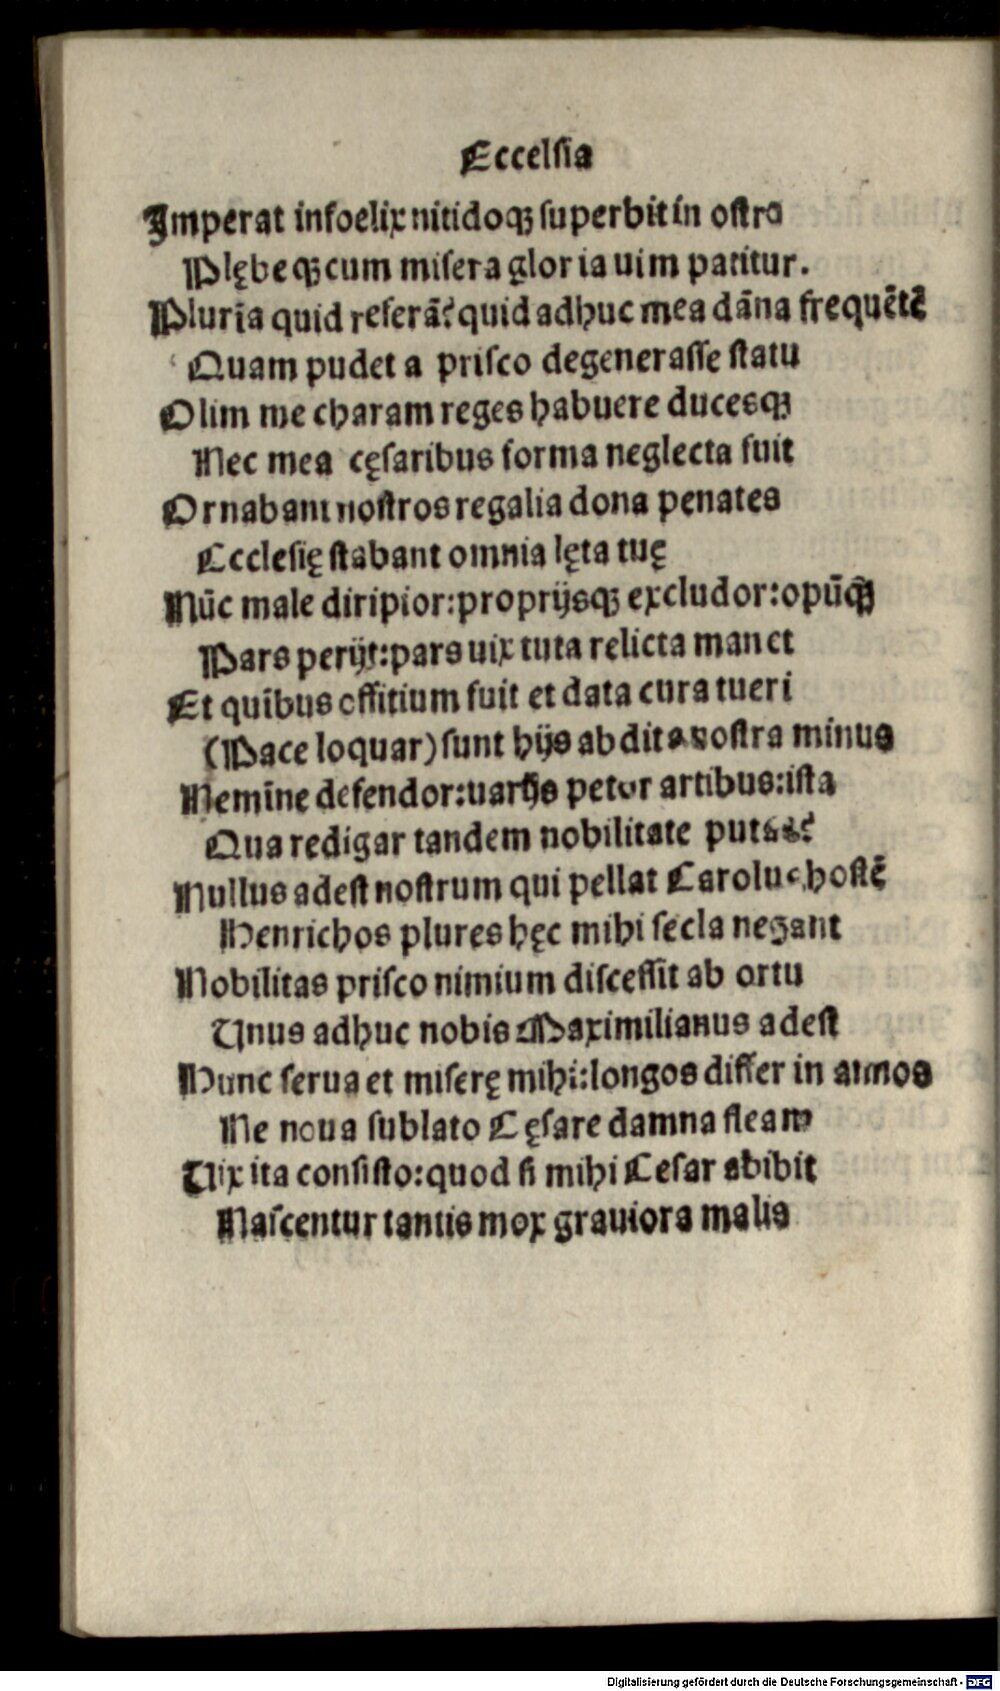 Eccelsia
Imperat infoelix nitidoqꝫ superbit in ostro
Plębeqꝫ cum misera gloria uim patitur.
Plurīa quid referā? quid adhuc mea dāna frequētē
Quam pudet a prisco degenerasse statu
Olim me charam reges habuere ducesqꝫ
Nec mea cęsaribus forma neglecta fuit
Ornabant nostros regalia dona penates
Ecclesię stabant omnia lęta tuę
Nūc male diripior: proprijsqꝫ excludor: opūqꝫ
Pars perijt: pars uix tuta relicta manet
Et quibus offitium fuit et data cura tueri
(Pace loquar) sunt hijs abdita nostra minus
Nemīne defendor: uarijs petor artibus: ista
Qua redigar tandem nobilitate putas?
Nullus adest nostrum qui pellat Carolus hostē
Henrichos plures hęc mihi secla negant
Nobilitas prisco nimium discessit ab ortu
Unus adhuc nobis Maximilianus adest
Hunc serua et miserę mihi: longos differ in annos
Ne noua sublato Cęsare damna fleam
Uix ita consisto: quod si mihi Cesar abibit
Nascentur tantis mox grauiora malis
Digitalisierung gefördert durch die Deutsche Forschungsgemeinschaft - DFG